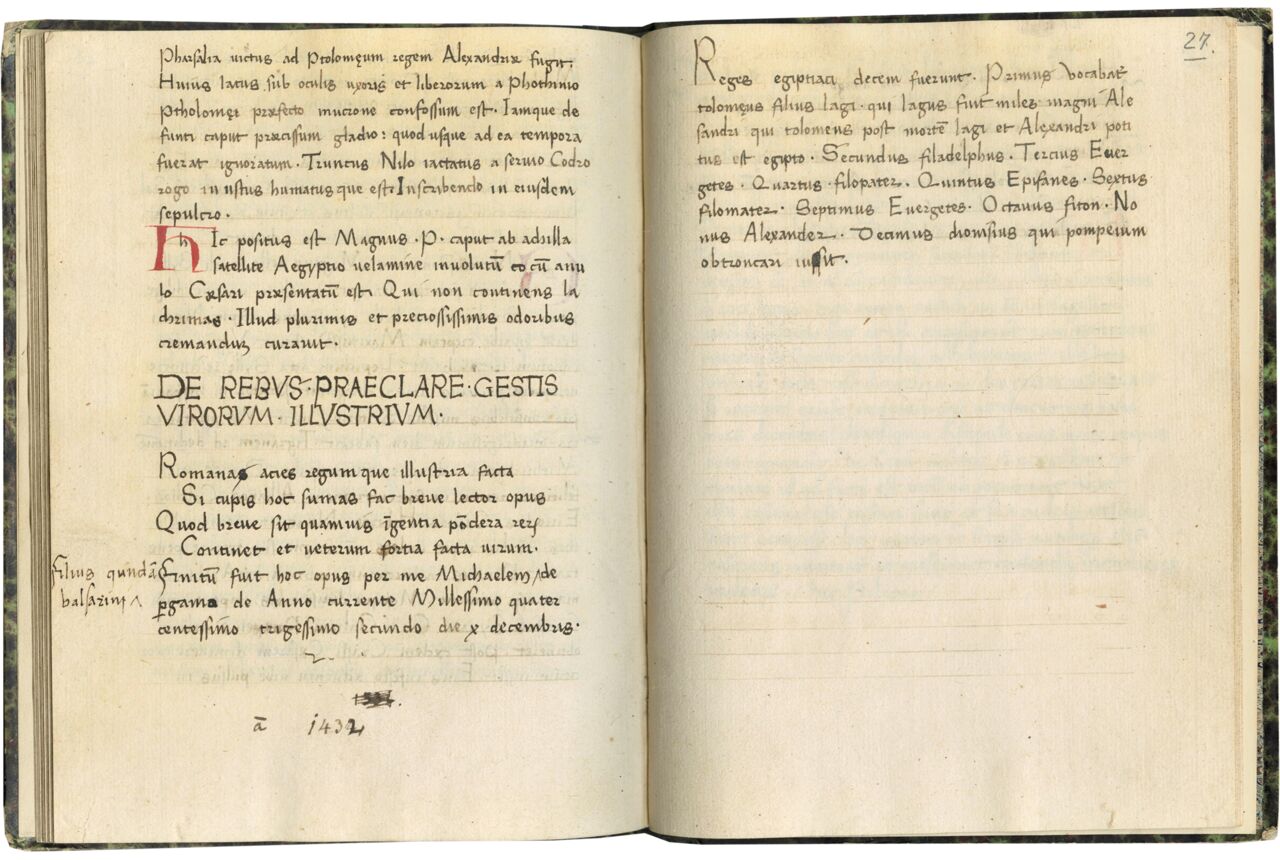 Pharsalia victus ad Ptolomęum regem Alexandriæ fugit.
Huius latus sub oculis uxoris et liberorum a Phothinio
Ptholomęi præfecto mucrone confossum est. Iamque de
functi caput præcissum gladio: quod usque ad ea tempora
fuerat ignoratum. Truncus Nilo iactatus a servio Codro
rogo in ustus humatus que est. Inscribendo in eiusdem
sepulcro.
hIc positus est Magnus. P. caput ab achilla
satellite Aegyptio velamine involutū to cū anu
lo Cæsari præsentatū est. Qui non continens la
chrimas. Illud plurimis et preciossissimis odoribus
cremandum curavit.
DE REBVS·PRAECLARE·GESTIS
VIRORVM·ILLVSTRIVM·
Romanas acies regum que illustria facta
Si cupis hoc sumas fac breve lector opus
Quod breve sit quamuis īgentia pōdera rerꝝ
Continet et veterum fortia facta virum.
Finitū fuit hoc opus per me Michaelem ^ de
filius qundā
balsarini ^
ꝑgamo de Anno currente Millessimo quater
centessimo trigessimo secundo die x decembris.
ā 1432
27.
Reges egiptiaci decem fuerunt. Primus vocabat̄
tolomęus filius lagi. qui lagus fuit miles magni Ale
sandri qui tolomeus post mortē lagi et Alexandri poti
tus est egipto. Secundus filadelphus. Tercius Ever
getes. Quartus filopater. Quintus Epifanes. Sextus
filomater. Septimus Evergetes. Octavus fiton. No
nus Alexander. Decimus dionisius qui pompeium
obtroncari iussit.